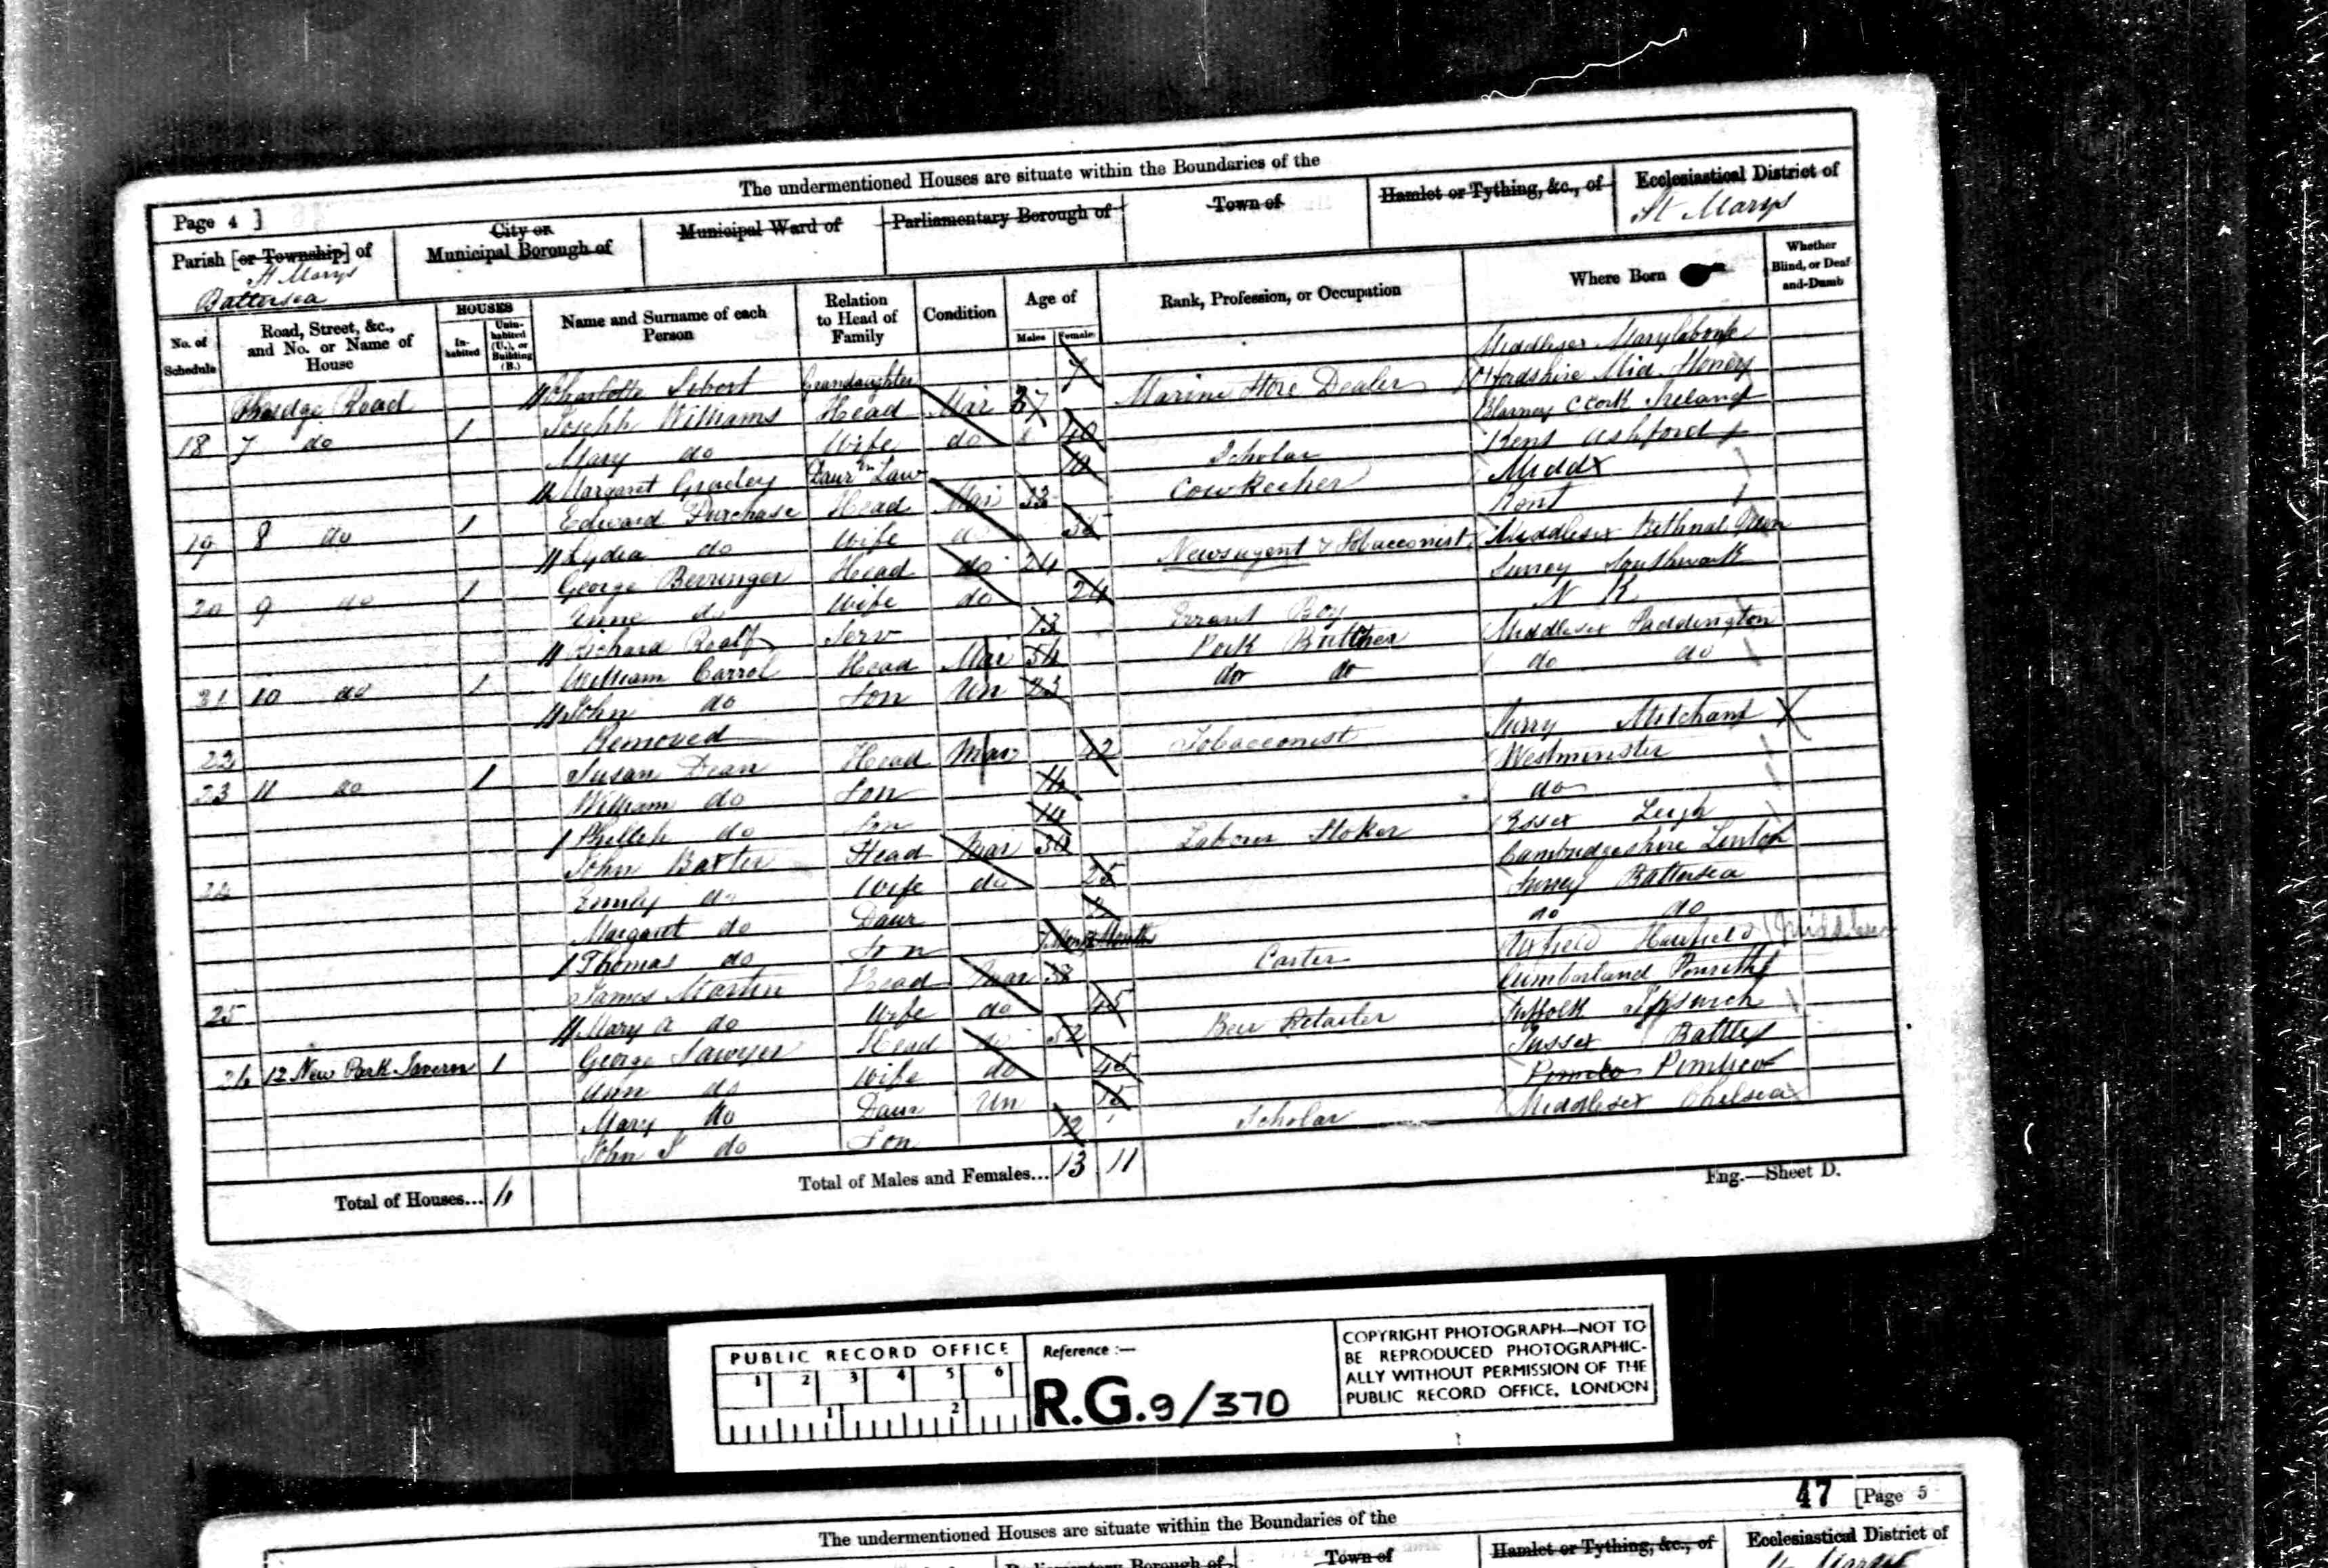 The undermentioned Houses are situate within the Boundaries of the
Page 4 ]
Parish [or Township] of
St Marys
Battersea
City or
Municipal Borough of
Municipal Ward of
Parliamentary Borough of
Town of
Hamlet or Tything, &c., of
Ecclesiastical District of
St Marys
No. of Schedule
Road, Street, &c., and No. or Name of House
HOUSES
In-habited
Unin-habited (U.), or Building (B.)
Name and Surname of each Person
Relation to Head of Family
Condition
Age of
Males Females
Rank, Profession, or Occupation
Where Born
Whether Blind, or Deaf-and-Dumb
Road Charlotte Grandaughter 7 Middlesex Marylebone
18 7 do 1 Joseph Williams Head Mar 37 Marine Store Dealer
Mary do Wife do 40 Blarney Cork Ireland
Margaret Daur in Law 10 Scholar Kent Ashford
19 8 do 1 Edward Purchase Head Mar Cowkeeper Middx
Lydia do Wife do Kent
20 9 do 1 George Berringer Head do 24 Newsagent & Tobacconist Middlesex Bethnal Green
Anne do Wife do 24 Surrey Southwark
Richard Serv 13 Errant Boy N K
21 10 do 1 William Carrol Head Mar 54 Pork Butcher Middlesex Paddington
John do Son Un 23 do do do do
22 Removed
23 11 do 1 Susan Dean Head Mar 42 Tobacconist Surry
William do Son Westminster
do Son do
24 John Baxter Head Mar Labour Stoker Essex Leigh
Emily do Wife do 25 Cambridgeshire Linton
Margaret do Daur 2 Surrey Battersea
Thomas do Son do do
25 James Martin Head Mar 38 Carter
Mary A do Wife do 45 Cumberland
26 12 New Park Tavern 1 George Sawyer Head do 52 Beer Retailer Suffolk Ipswich
Ann do Wife do 45 Sussex Battle
Mary do Daur Un Pimlico
John do Son 12 Scholar Middlesex Chelsea
Total of Houses... 6
Total of Males and Females... 13 11
Eng.—Sheet D.
PUBLIC RECORD OFFICE
1 2 3 4 5 6
1 2
Reference :—
R.G. 9/370
COPYRIGHT PHOTOGRAPH—NOT TO
BE REPRODUCED PHOTOGRAPHIC-
ALLY WITHOUT PERMISSION OF THE
PUBLIC RECORD OFFICE, LONDON
47 [Page 5
The undermentioned Houses are situate within the Boundaries of the
Parliamentary Borough of
Town of
Hamlet or Tything, &c., of
Ecclesiastical District of